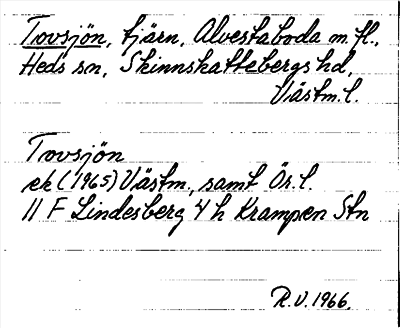 Tovsjön, tjärn, Alvestaboda m. fl.,
Heds sn, Skinnskattebergs hd,
Västm. l.
Tovsjön
ek (1965) Västm., samt Ör. l.
11 F Lindesberg 4 h Krampen Stn
R.V. 1966.